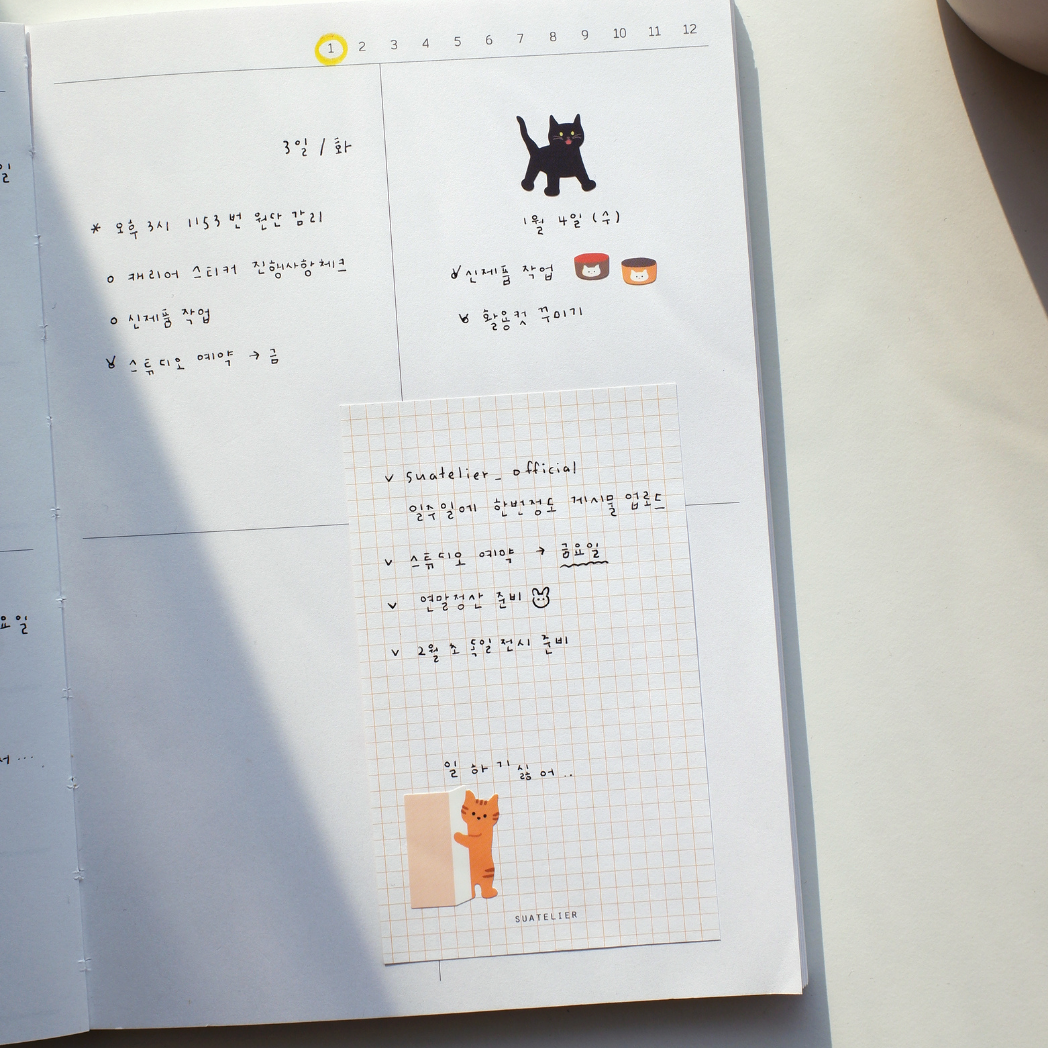 1 2 3 4 5 6 7 8 9 10 11 12
3일 / 화
* 오후 3시 1153번 원단 감리
o 캐리어 스티커 진행사항체크
o 신제품 작업
v 스튜디오 예약 → 금
1월 4일 (수)
v 신제품 작업
v 활용컷 꾸미기
v suatelier_official
일주일에 한번정도 게시물 업로드
v 스튜디오 예약 → 금요일
v 연말정산 준비
v 2월 초 독일 전시 준비
일 하기 싫어..
SUATELIER